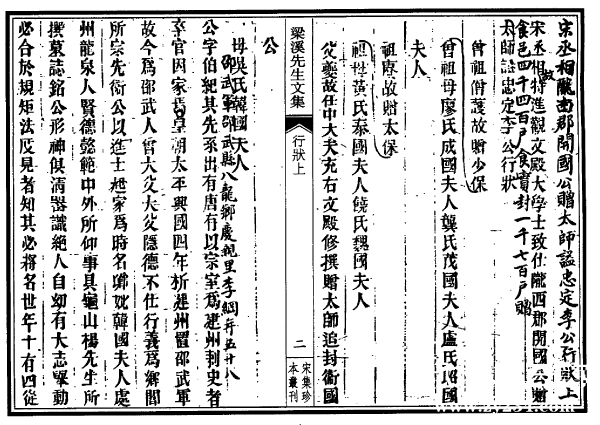 宋丞相隴西郡開國公贈太師謚忠定李公行狀上
宋故丞相特進觀文殿大學士致仕隴西郡開國公贈
食邑四千四百戶食實封一千七百戶贈
太師謚忠定李公行狀
曾祖僧護故贈少保
曾祖母廖氏成國夫人龔氏茂國夫人盧氏昭國
夫人
祖賡故贈太保
祖母黃氏泰國夫人饒氏魏國夫人
父夔故任中大夫充右文殿修撰贈太師追封衛國
公
梁溪先生文集
行狀上
二
宋集珍
本叢刊
母吳氏韓國夫人
邵武軍邵武縣八龍鄉慶親里李綱年五十八
公字伯紀其先系出有唐有以宗室為建州刺史者
卒官因家焉皇朝太平興國四年析建州置邵武軍
故今為邵武人曾大父大父隱德不仕行義為鄉閭
所宗先衛公以進士起家為時名卿妣韓國夫人處
州龍泉人賢德懿範中外所仰事具龜山楊先生所
撰墓誌銘公形神俱清器識絕人自幼有大志舉動
必合於規矩法度見者知其必將名世年十有四從